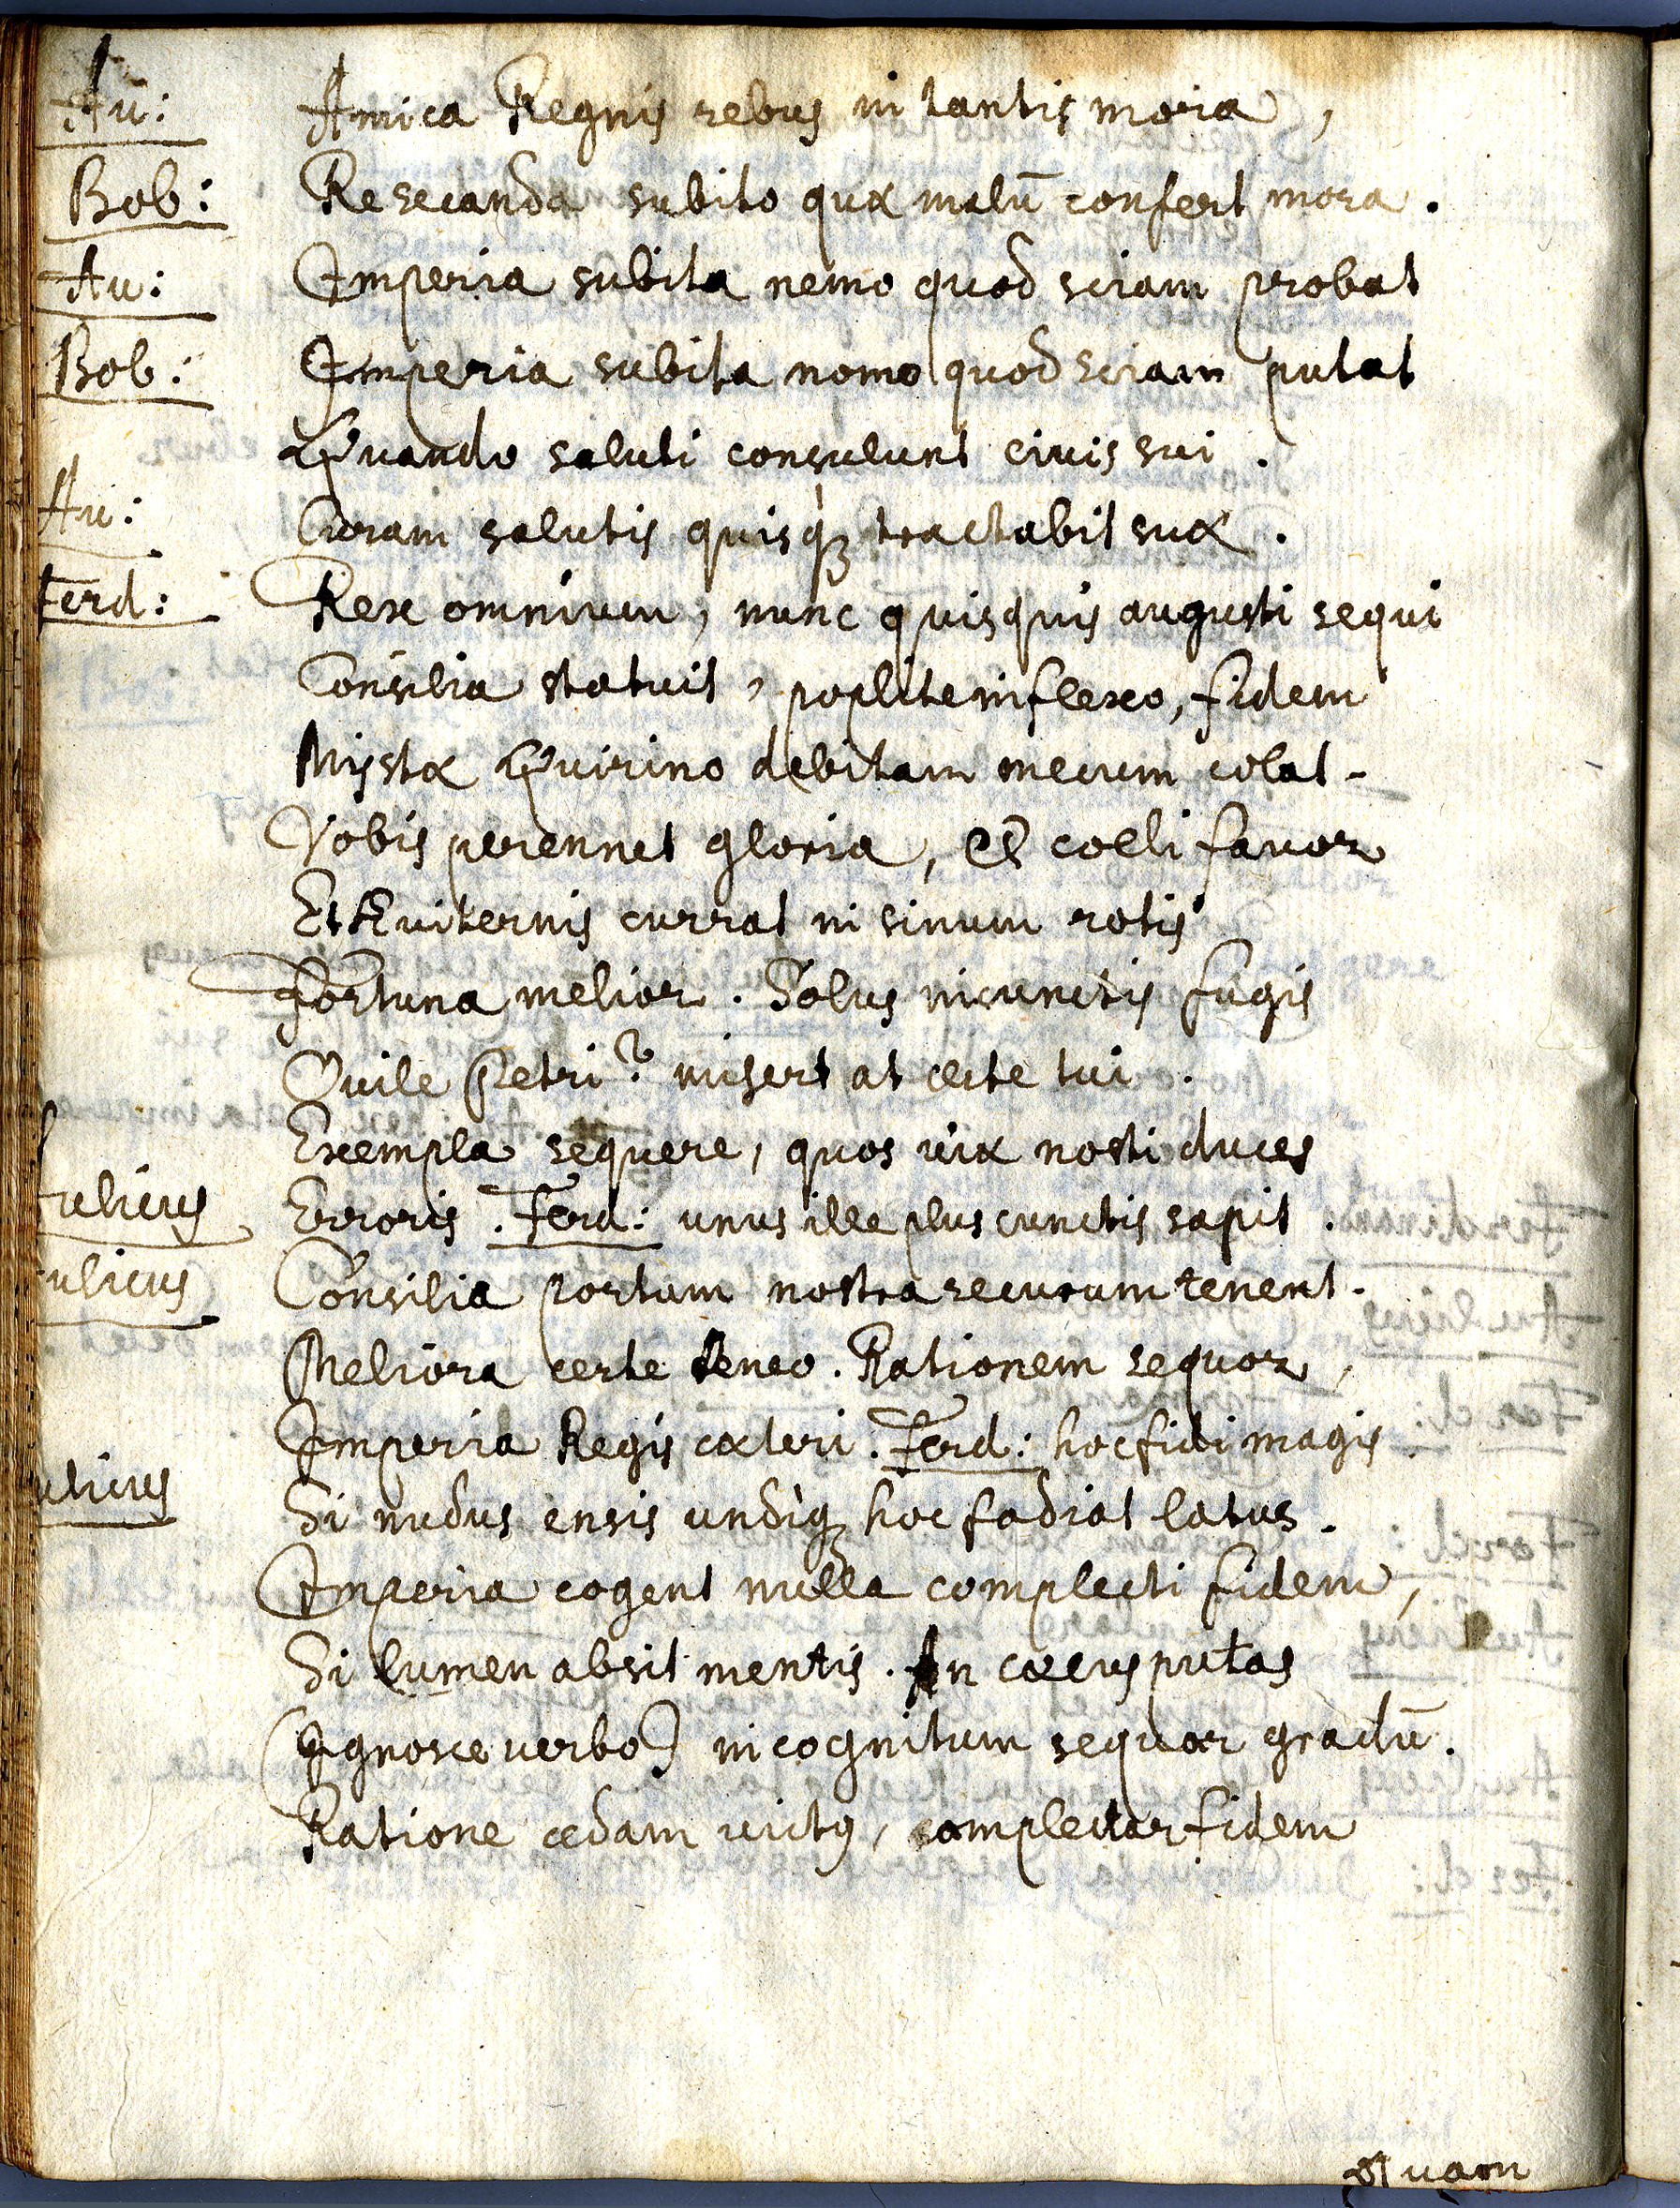 Au: Amica Regnis rebus in tantis mora,
Bob: Resecanda subito quæ malū confert mora.
Au: Imperia subita nemo quod sciam probat
Bob: Imperia subita nemo quod sciam putat
Quando saluti consulunt civis sui.
Au: Curam salutis quisq̀ꝫ tractabit suæ.
Ferd: Rex omnium, nunc quisquis augusti sequi
Consilia statuit, poplite inflexo, fidem
Mystæ Quirino debitam mecum colat.
Vobis perennet gloria, et coeli favor
Et Æviternis currat in sinum rotis
Fortuna melior. Solus in cunctis fugis
Ovile Petri? miser at certe tui.
Exempla sequere, quos viæ nosti duces
ulicus Erroris. Ferd: unus ille plus cunctis sapit.
ulicus Consilia portum nostra securum tenent.
Meliora certe teneo. Rationem sequor,
Imperia Regis cæteri. Ferd: hoc fidi magis
ulicus Si nudus ensis undiqꝫ hoc fodiat latus.
Imperia cogent nulla complecti fidem,
Si lumen absit mentis. An cæcus putas
(Ignosce verbo) incognitum sequor gradū.
Ratione cedam victꝰ, complectar fidem
Quam